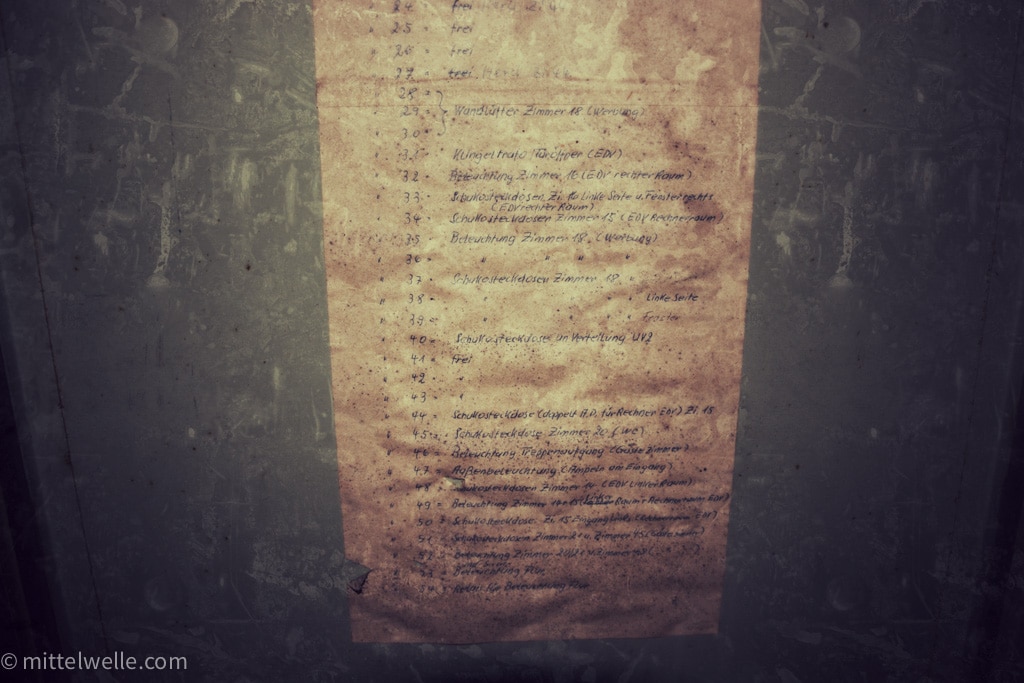 " 24 = frei
" 25 = frei
" 26 = frei
" 27 = frei
" 28 = }
" 29 = } Wandlüfter Zimmer 18 (Werbung)
" 30 = }
" 31 = Klingeltrafo Türöffner (EDV)
" 32 = Beleuchtung Zimmer 16 (EDV rechter Raum)
" 33 = Schukosteckdosen Zi. 16 Linke Seite u. Fenster rechts
(EDV rechter Raum)
" 34 = Schukosteckdosen Zimmer 15 (EDV Rechnerraum)
" 35 = Beleuchtung Zimmer 18 (Werbung)
" 36 = " " " "
" 37 = Schukosteckdosen Zimmer 18 "
" 38 = " " " " Linke Seite
" 39 = " " " "
" 40 = Schukosteckdose an Verteilung UV2
" 41 = frei
" 42 = "
" 43 = "
" 44 = Schukosteckdose (doppelt A.P. für Rechner EDV) Zi. 15
" 45 = Schukosteckdose Zimmer 20 (WC)
" 46 = Beleuchtung Treppenaufgang
" 47 = Außenbeleuchtung (Ampeln am Eingang)
" 48 = Schukosteckdosen Zimmer 14 (EDV Linker Raum)
" 49 = Beleuchtung Zimmer
" 50 = Schukosteckdose Zi. 15 Eingang links
" 51 = Schukosteckdosen Zimmer
" 52 = Beleuchtung Zimmer
" 53 = Beleuchtung Flur
" 54 = Relais für Beleuchtung Flur
© mittelwelle.com